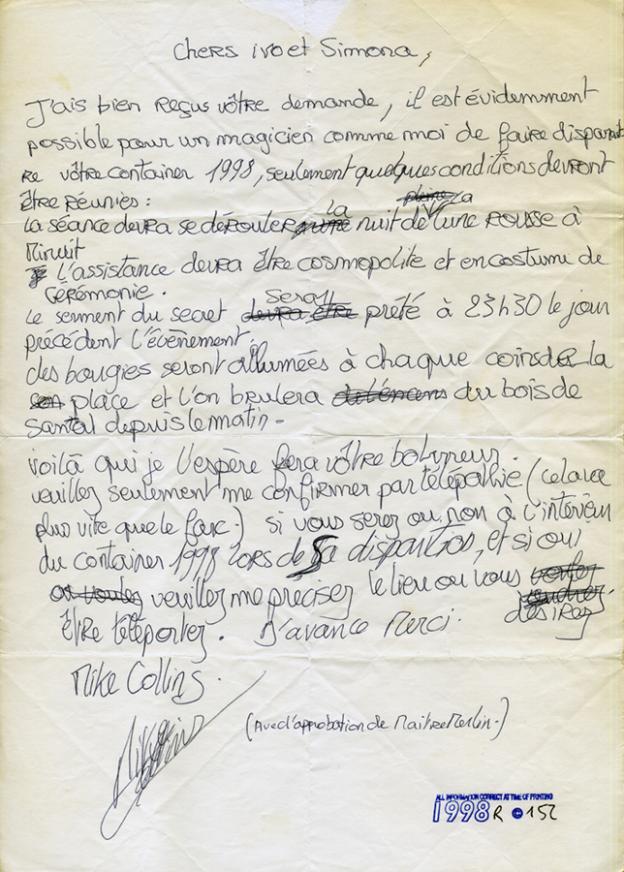 Chers ivo et Simona,
J'ais bien reçus vôtre demande, il est évidemment
possible pour un magicien comme moi de faire disparait
re vôtre container 1998, seulement quelques conditions devront
être réuniès :
pleine
La séance devra se dérouler la nuit de la lune rousse à
Minuit
L'assistance devra être cosmopolite et en costume de
Cérémonie.
Le serment du secret devra être sera prété à 23h30 le jour
précédent l'évènement.
des bougies seront allumées à chaque coins de la
place et l'on brulera du bois de
Santal depuis le matin -
voilà qui je l'espère fera vôtre bonheur.
veuillez seulement me confirmer par télépathie (cela va
plus vite que le fax.) si vous serez ou non à l'intérieur
du container 1998 lors de sa disparition, et si oui
ou voulez veuillez me preciser le lieu ou vous voulez
désirez
être téléportez. D'avance Merci.
Mike Collins.
(Avec l'approbation de Maitre Merlin.)
ALL INFORMATION CORRECT AT TIME OF PRINTING
1998 R 152